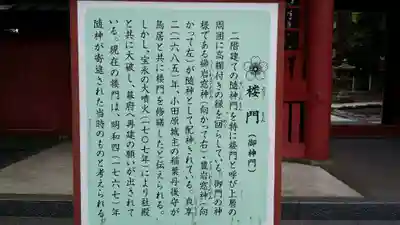 楼門
(御神門)
二階建ての随神門を特に楼門と呼び上層の
周囲に高欄付きの縁を回らしている。御門の神
様である櫛岩窓神(向かって右)・豊岩窓神(向
かって左)が随神として配神されている。貞享
二(一六八五)年、小田原城主の稲葉丹後守が
鳥居と共に楼門を修繕したと伝えられる。
しかし、宝永の大噴火(一七〇七年)により社殿
と共に大破し、幕府へ再建の願いが出されて
いる。現在の楼門は、明和四(一七六七)年
随神が寄進された当時のものと考えられる。